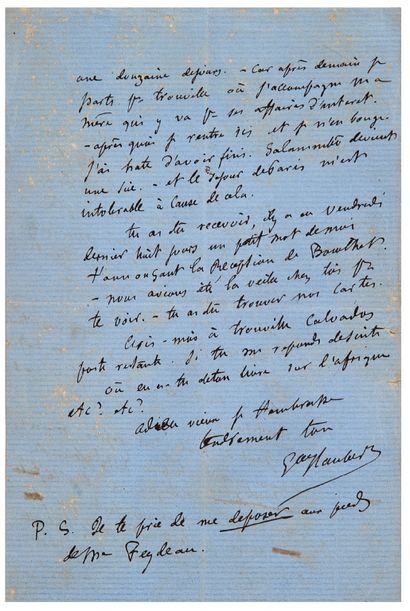 une douzaine de jours. - Car après demain je
parts pr Trouville où j'accompagne ma
mère qui y va pr ses affaires d'intérêt.
- après quoi je rentre ici et je n'en bouge.
J'ai hâte d'avoir fini. Salammbô devient
une scie. - et le séjour de Paris m'est
intolérable à cause de cela.
tu as dû recevoir, il y a eu vendredi
dernier huit jours un petit mot de moi
t'annonçant la Réception de Bouilhet.
- nous avions été la veille chez toi pr
te voir. - tu as dû trouver nos cartes.
Écris-moi à Trouville Calvados
poste restante. Si tu me réponds de suite
où en es-tu de ton livre sur l'afrique
etc? etc?
adieu vieux je t'embrasse
tendrement ton
Gve Flaubert
P. S. Je te prie de me déposer aux pieds
de Me Feydeau.